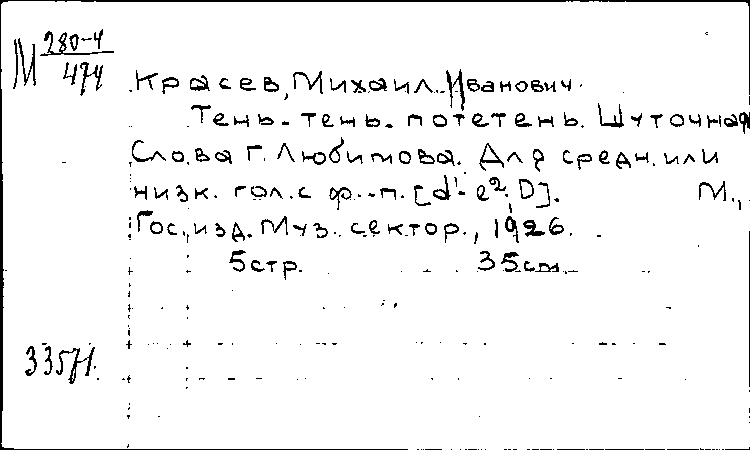 М 280-4
474
Красев, Михаил Иванович.
Тень-тень-потетень. Шуточная
Слова Г. Любимова. Для средн. или
низк. гол. с ф.-п. [d¹-e², D]. М.,
Гос. изд. Муз. сектор., 1926.
5стр. 35см.
33571.